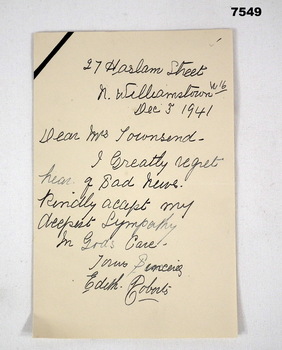 7549
27 Haslam Street
N. Williamstown W16
Dec 3 1941
Dear Mrs Townsend -
I Greatly regret
hear of Bad News.
Kindly accept my
deepest Sympathy
In Gods Care -
Yours Sincerely
Edith. Roberts